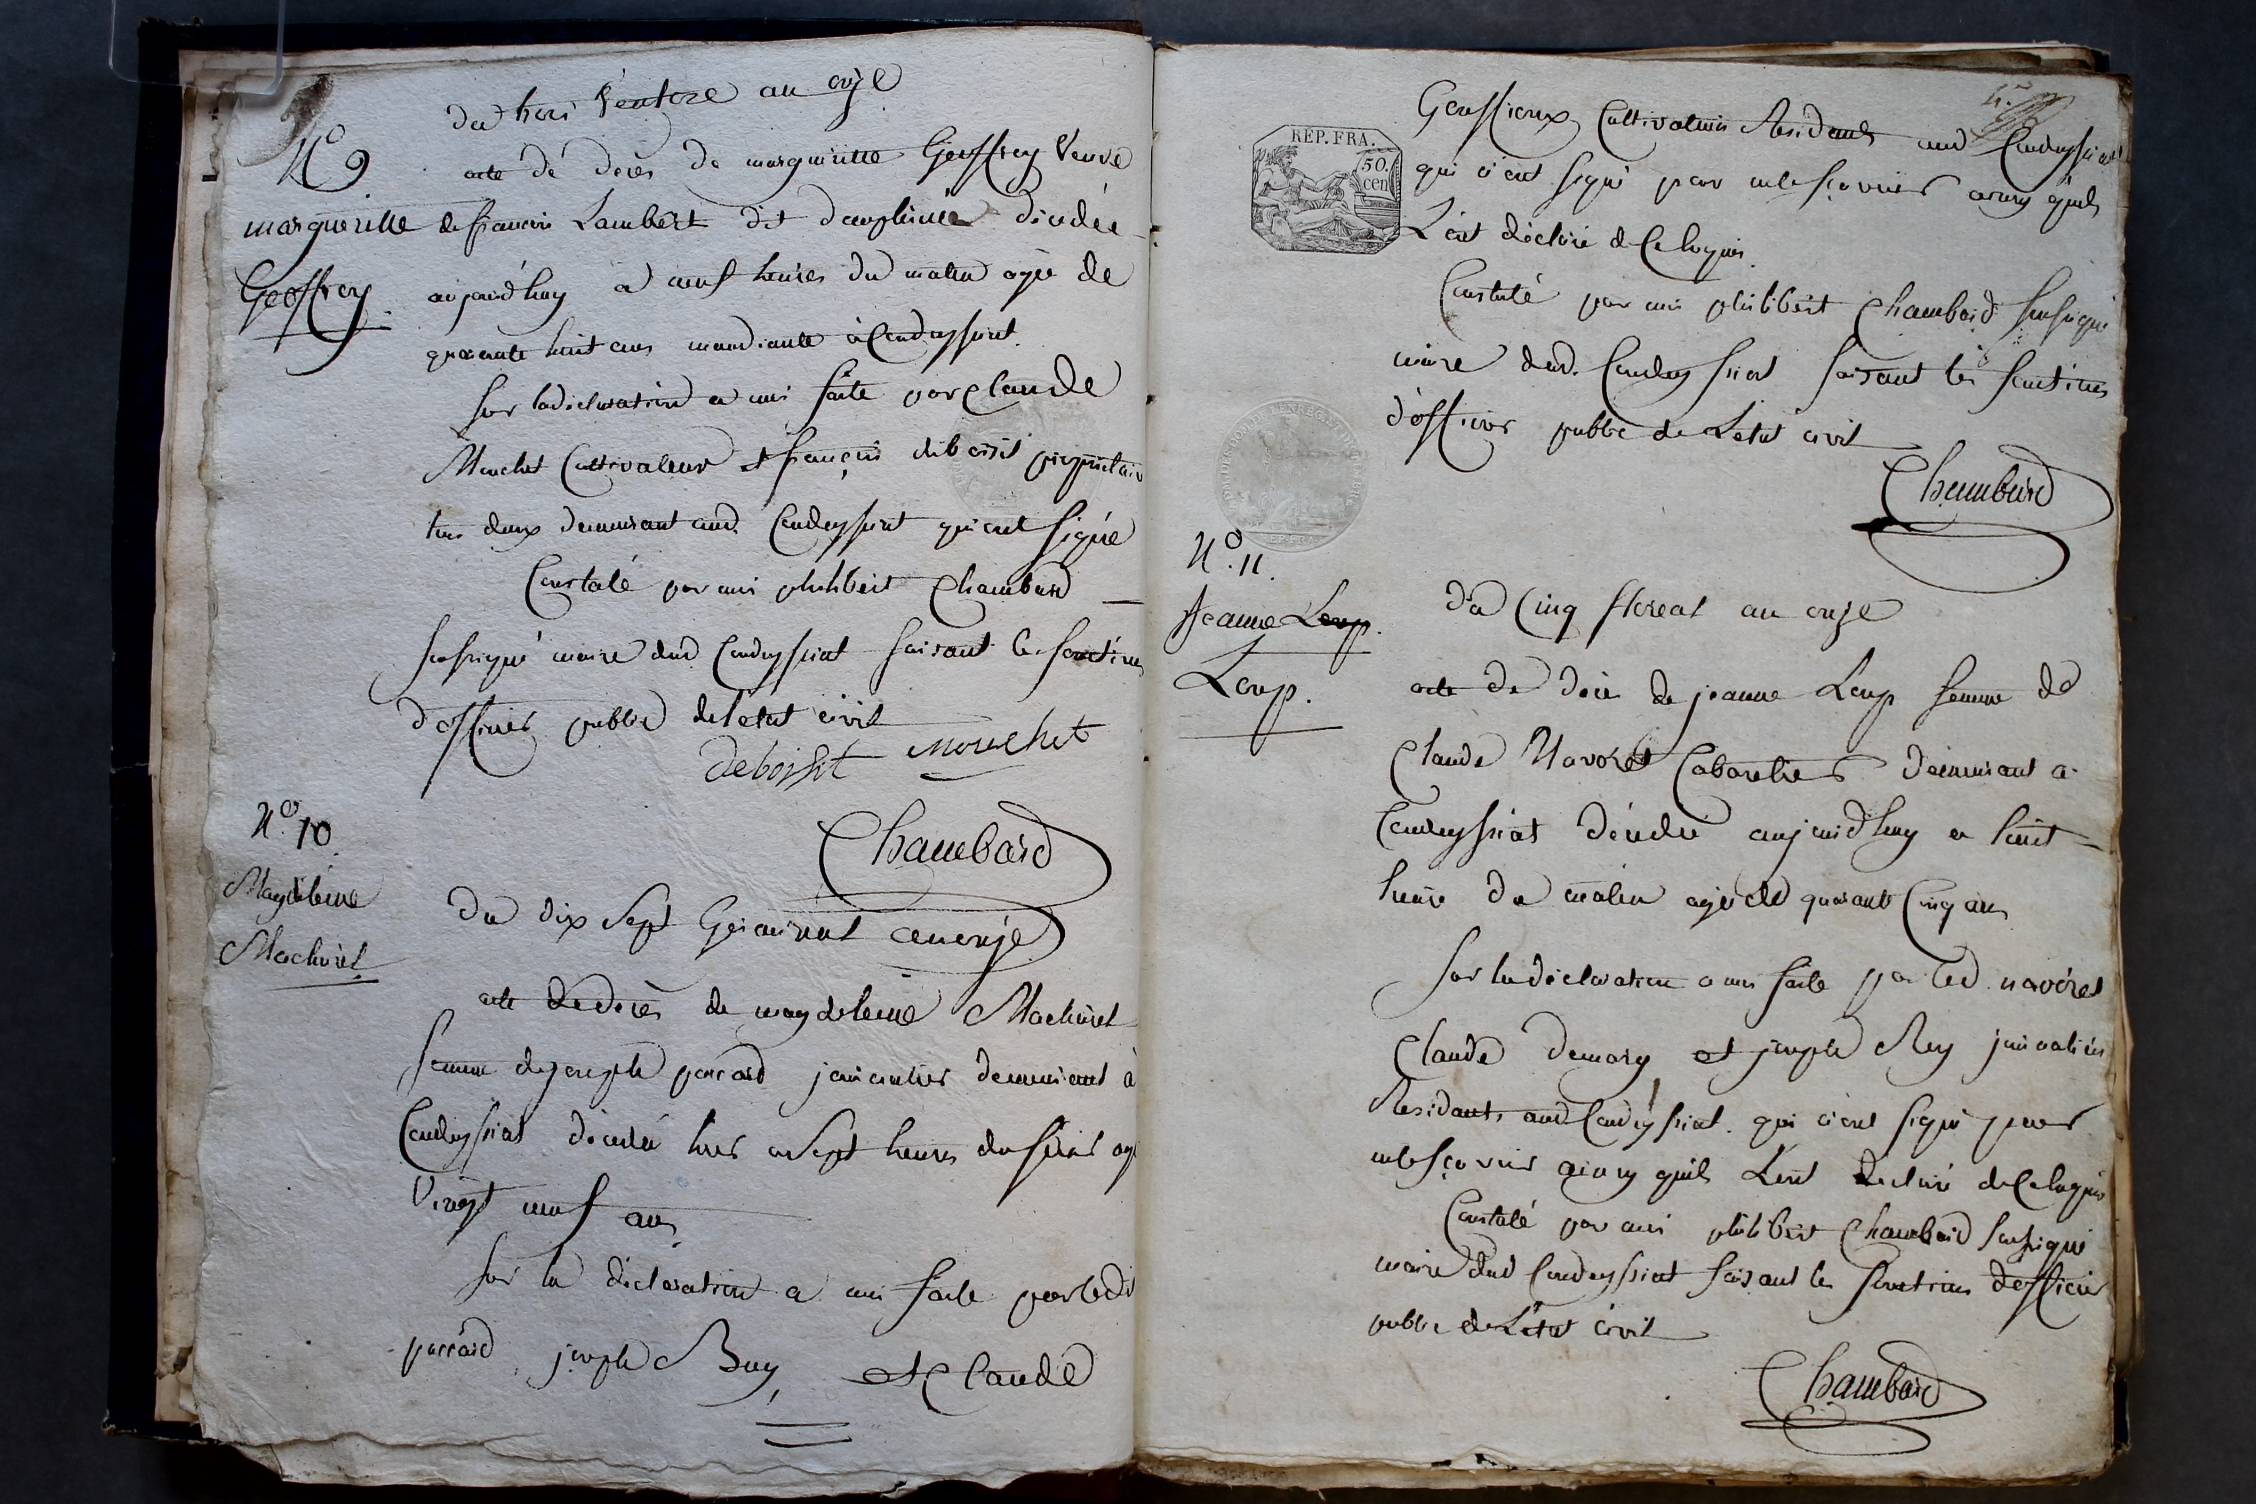 du trois Ventose an onze
N° 9
margueritte
Geoffrey
acte de décès de marguerite Geoffrey Veuve
de françois Lambert dit dauphiné décédée
aujourd'huy a neuf heures du matin agée de
quarante huit ans mandiante à Condeyssiat
sur la déclaration a moi faite par Claude
Mouchet Cultivateur et françois deboisit propriétaire
tus deux demeurant aud. Condeyssiat qui ont signé
Constaté par moi philibert Chambard
soussigné maire dud Condeyssiat faisant les fonctions
d'officier public de l'état civil
deboisit mouchet
Chambard
N° 10
Magdeleine
Machuret
du dix Sept Germinal an onze
acte de décès de magdeleine Machuret
femme de joseph poncard journalier demeurant à
Condeyssiat décédée hier a Sept heures du soir agé
Vingt neuf ans
sur la déclaration a moi faite par ledi
joseph Buy, et Claude
REP. FRA.
50.
cen
Geoffrioux Cultivateurs Residants aud Condeyssiat
qui n'ont signé pour ne le sçavoir anssy qu'ils
L'ont déclaré de Ce Requis
Constaté par moi philibert Chambard soussigné
maire dud. Condeyssiat faisant les fonctions
d'officier public de L'état civil
Chambard
N°. 11.
Jeanne Loup.
Loup.
du Cinq floreal an onze
acte de décè de jeanne Loup femme de
Claude Navoret Cabaretier demeurant a
Condeyssiat décédée aujourdhuy a huit
heure du matin agée de quarante Cinq ans
sur la déclaration a moi faite par led. navoret
Claude demary et joseph Rey journaliers
Residants aud Condeyssiat. qui n'ont signé pour
ne le sçavoir ainsy qu'ils L'ont declaré de Ce Requis
Constaté par moi philibert Chambard soussigné
maire dud Condeyssiat faisant les fonctions d'officier
public de L'état civil
Chambard